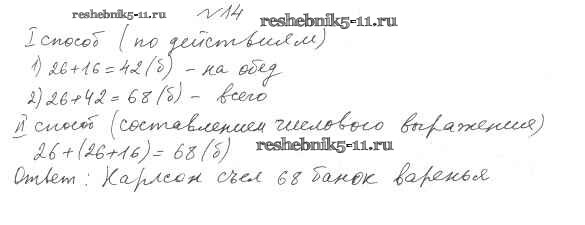 reshebnik5-11.ru № 14 reshebnik5-11.ru
I способ (по действиям)
1) 26+16=42(б) – на обед
2) 26+42=68(б) – всего
II способ (составлением числового выражения)
26+(26+16)=68(б) reshebnik5-11.ru
Ответ: Карлсон съел 68 банок варенья